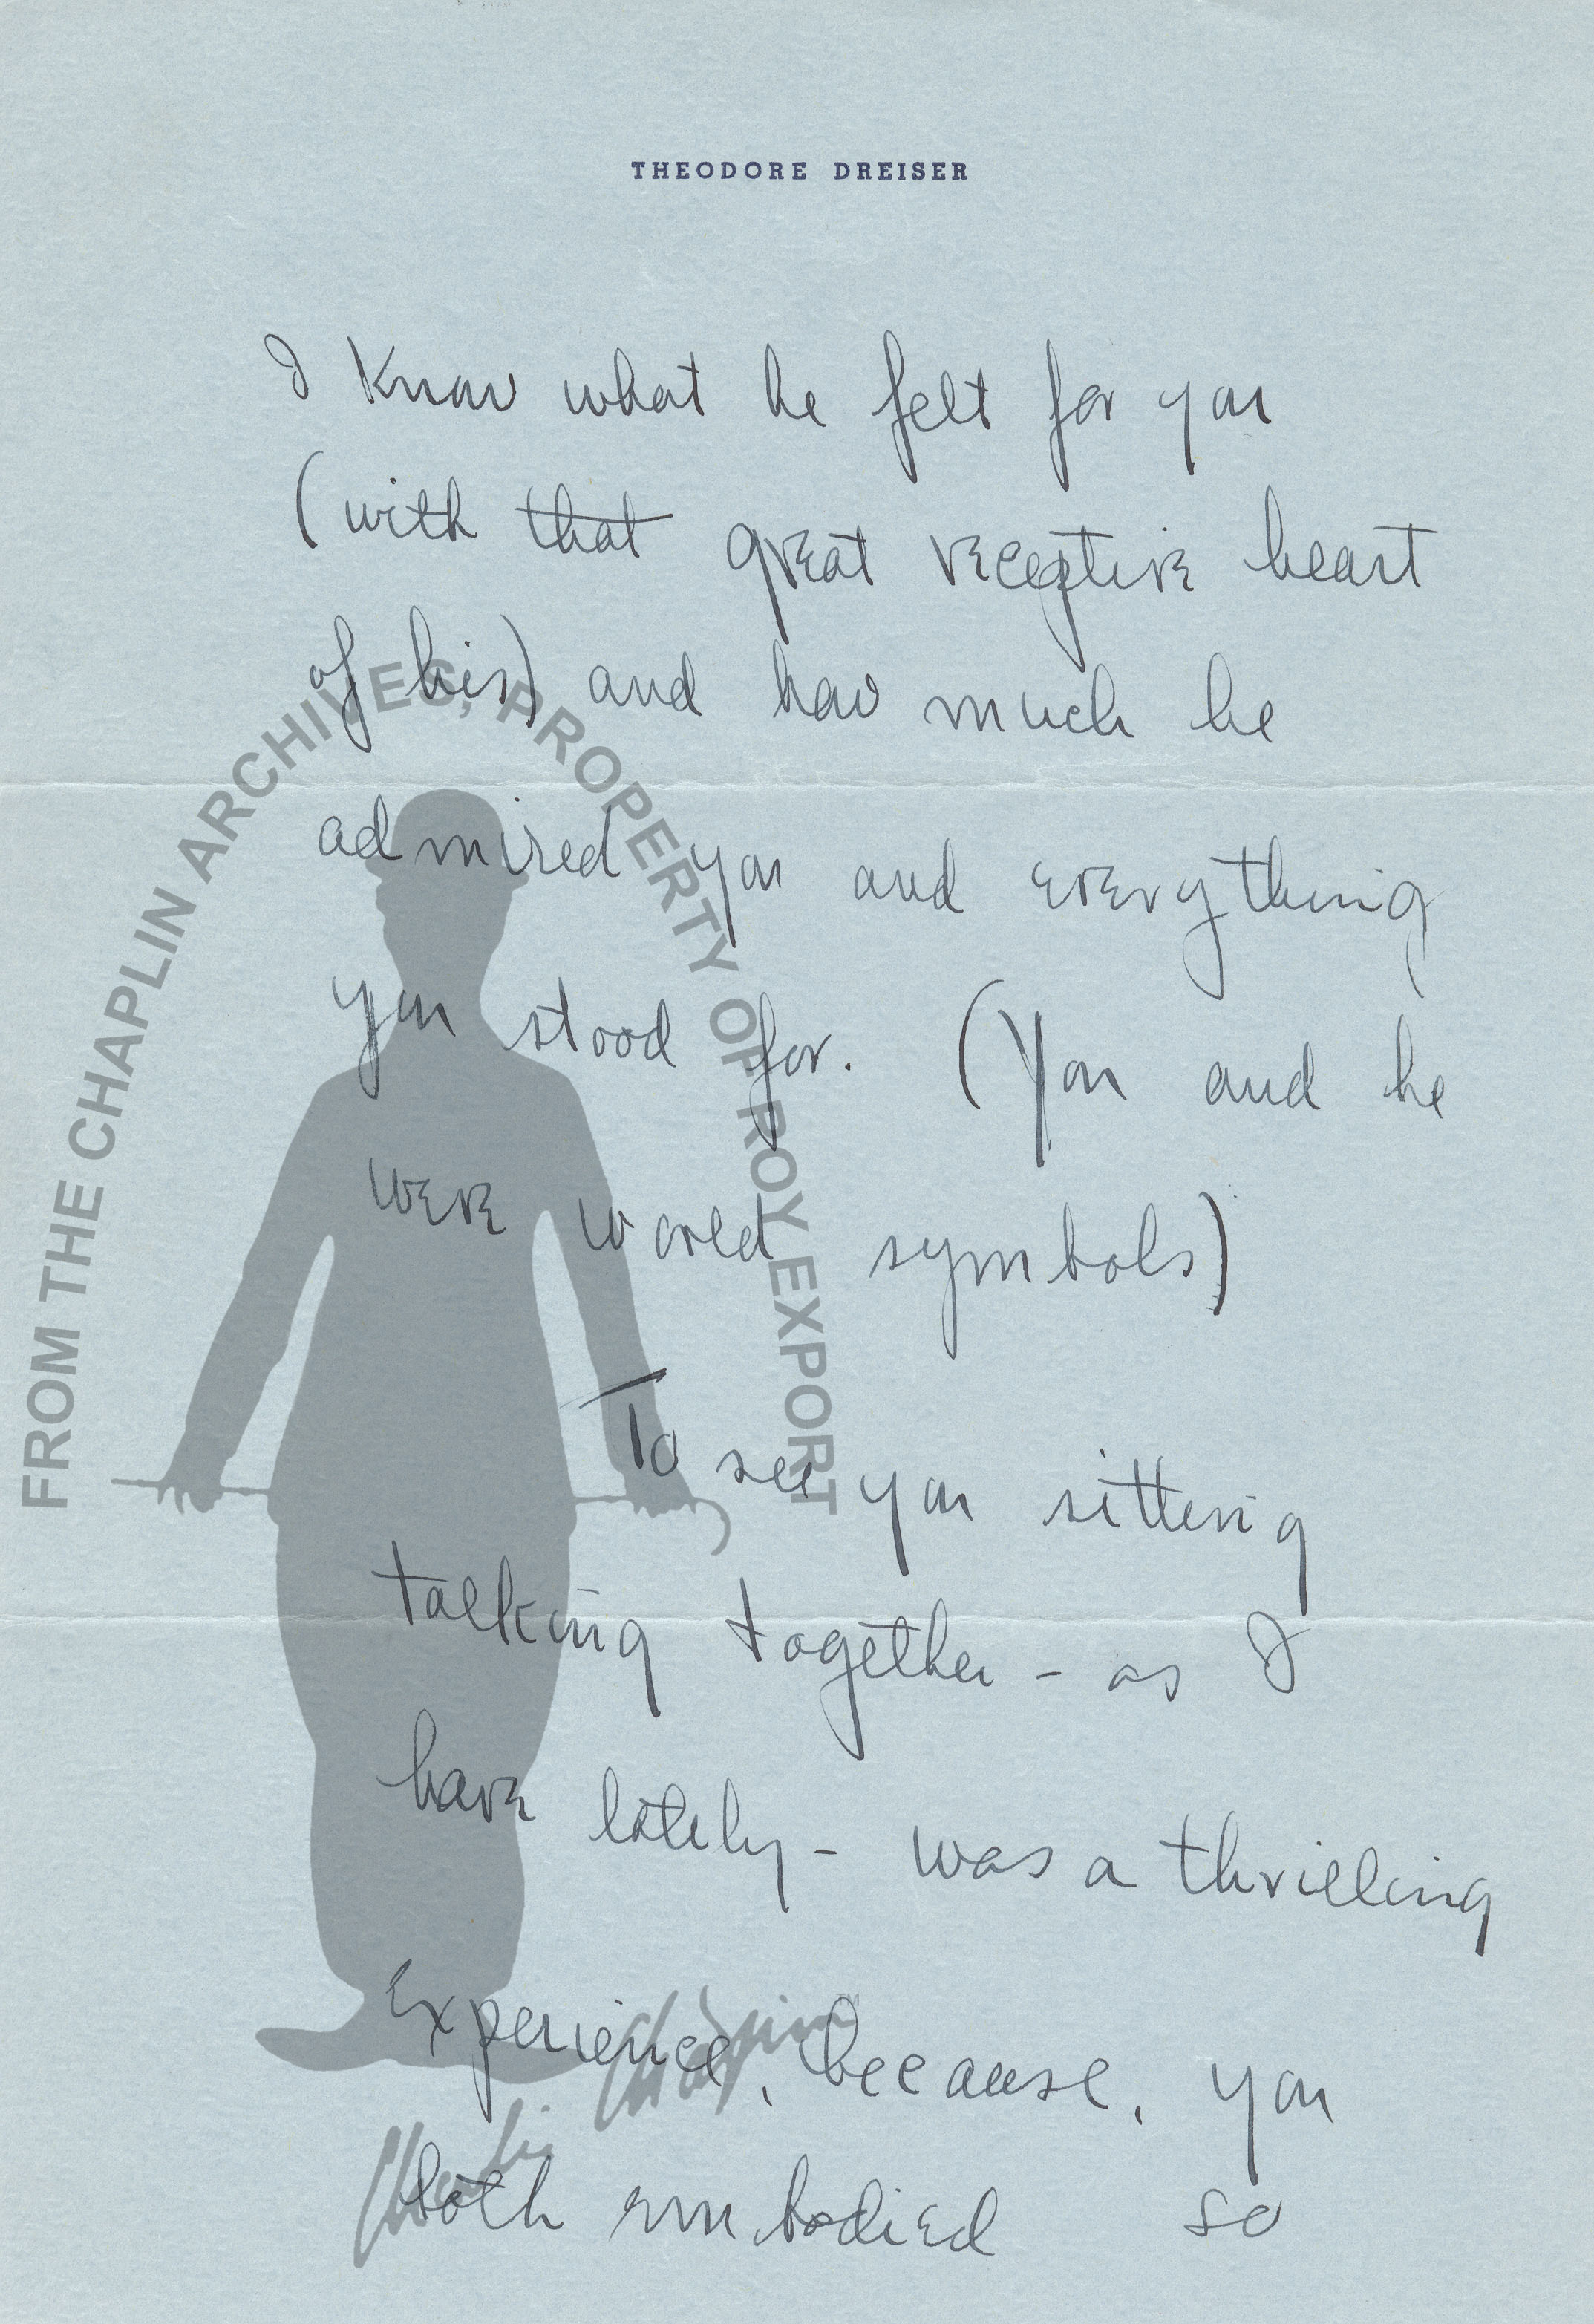 THEODORE DREISER
I Know what he felt for you
(with that great receptive heart
of his) and how much he
admired you and everything
you stood for. (You and he
were world symbols)
To see you sitting
talking together - as I
have lately - was a thrilling
Experience, because, you
both embodied so
FROM THE CHAPLIN ARCHIVES, PROPERTY OF ROY EXPORT
Charlie Chaplin